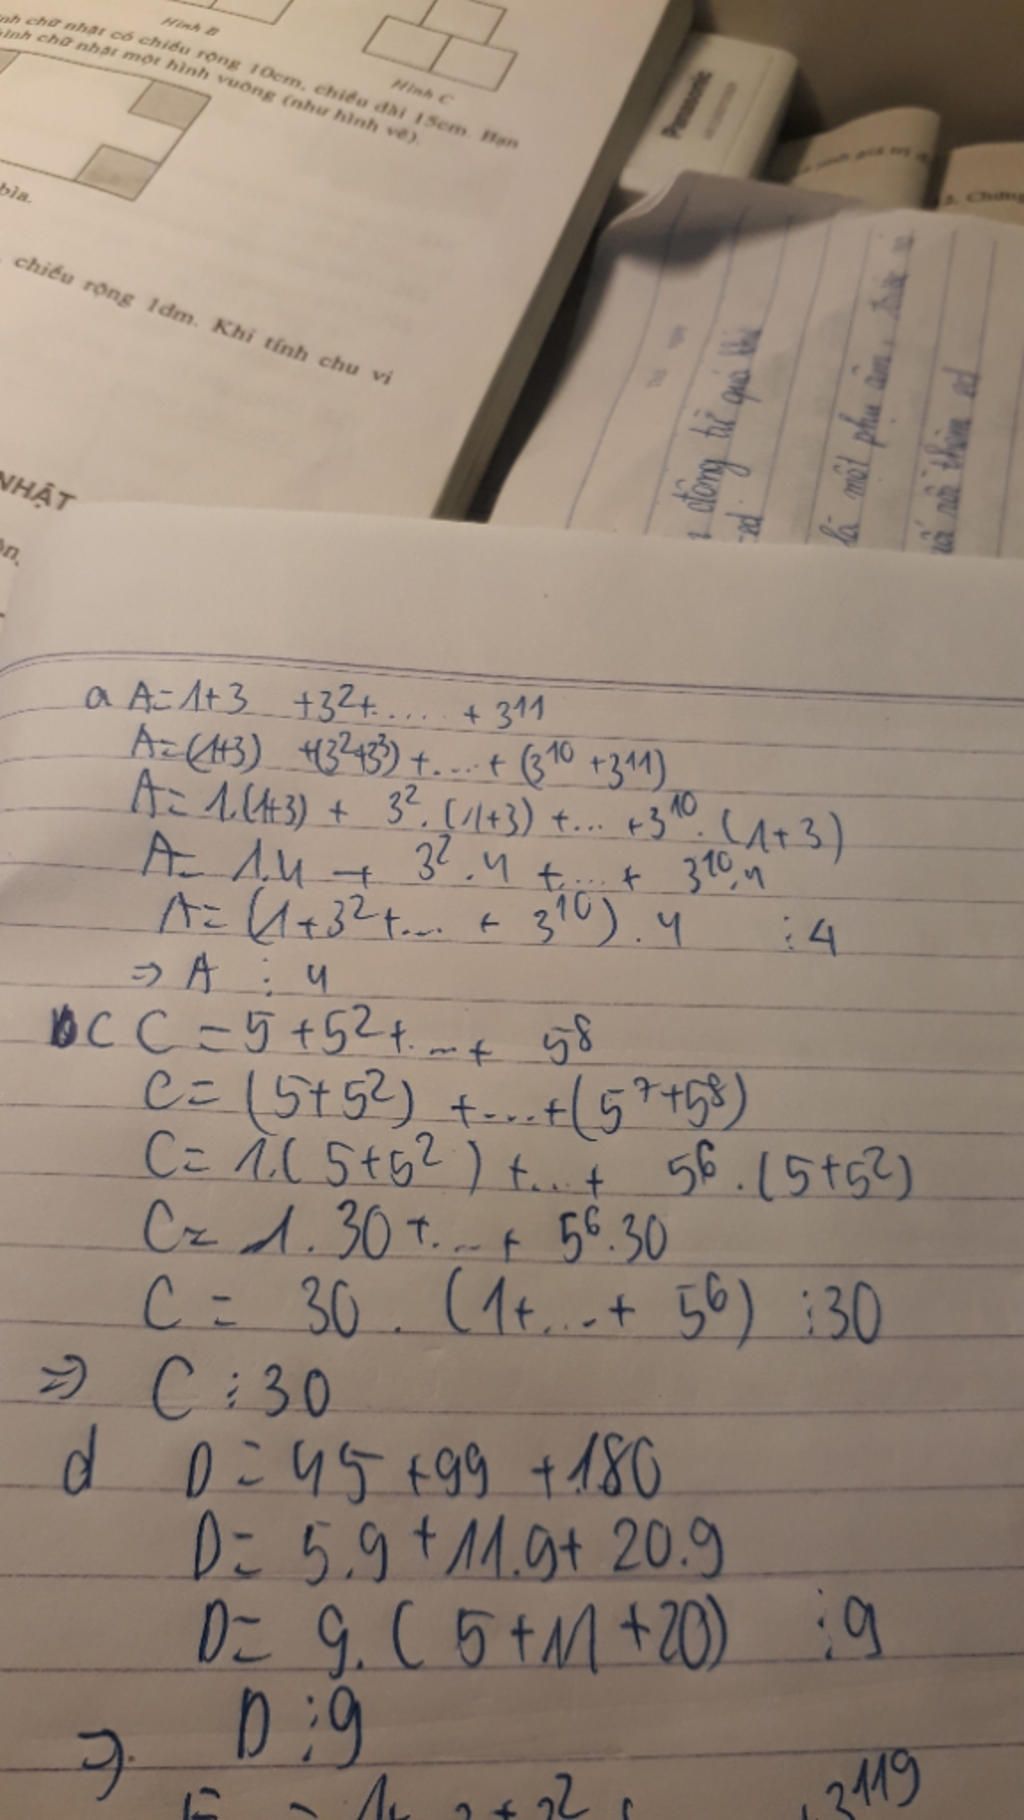 Hình B
Hình C
nh chữ nhật có chiều rộng 10cm, chiều dài 15cm. Bạn
hình chữ nhật một hình vuông (như hình vẽ).
bìa.
chiều rộng 1dm. Khi tính chu vi
NHẬT
Panasonic
2. Chứng
động từ quá khứ
ed
là một phụ âm,
rồi thêm ed
a A=1+3 +3²+.... + 3¹¹
A=(1+3) +(3²+3³) +....+ (3¹⁰ +3¹¹)
A= 1.(1+3) + 3².(1+3) +... +3¹⁰.(1+3)
A= 1.4 + 3².4 +...+ 3¹⁰.4
A= (1+3²+... + 3¹⁰).4 ⋮4
=> A ⋮ 4
C C = 5 +5²+...+ 5⁸
C= (5+5²) +....+(5⁷+5⁸)
C= 1.(5+5²) +...+ 5⁶.(5+5²)
C= 1.30 +...+ 5⁶.30
C = 30 . (1+...+ 5⁶) ⋮30
=> C ⋮30
d D = 45 +99 +180
D= 5.9 +11.9+ 20.9
D= 9.( 5+11+20) ⋮9
=> D ⋮9